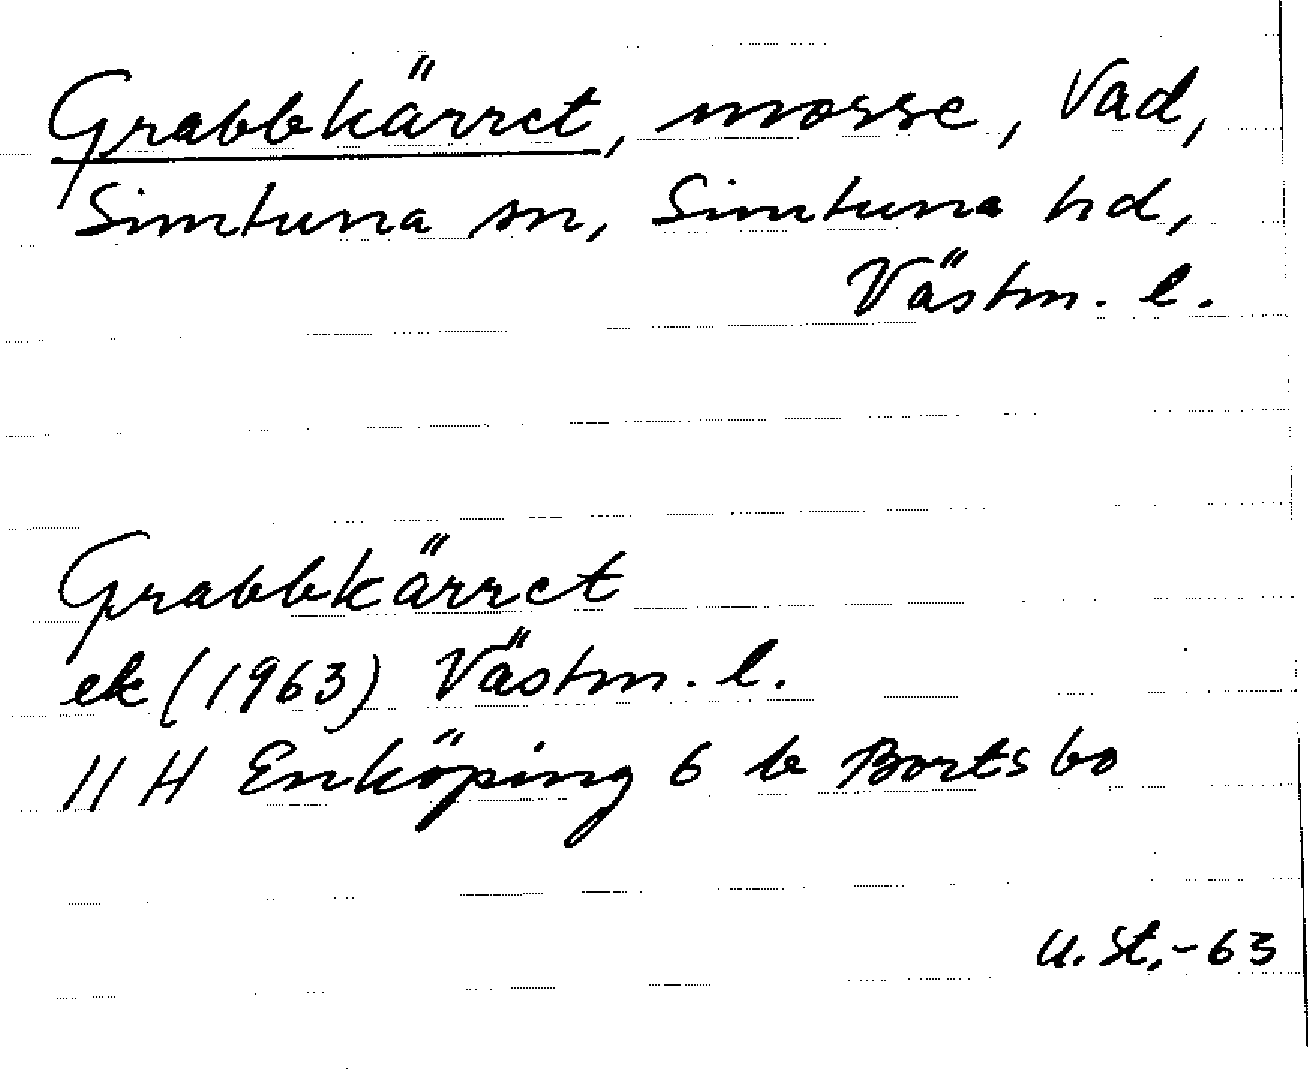 Grabbkärret, mosse, Vad,
Simtuna sn, Simtuna hd,
Västm. l.
Grabbkärret
ek (1963) Västm. l.
11 H Enköping 6 b Bortsbo
U. St, -63